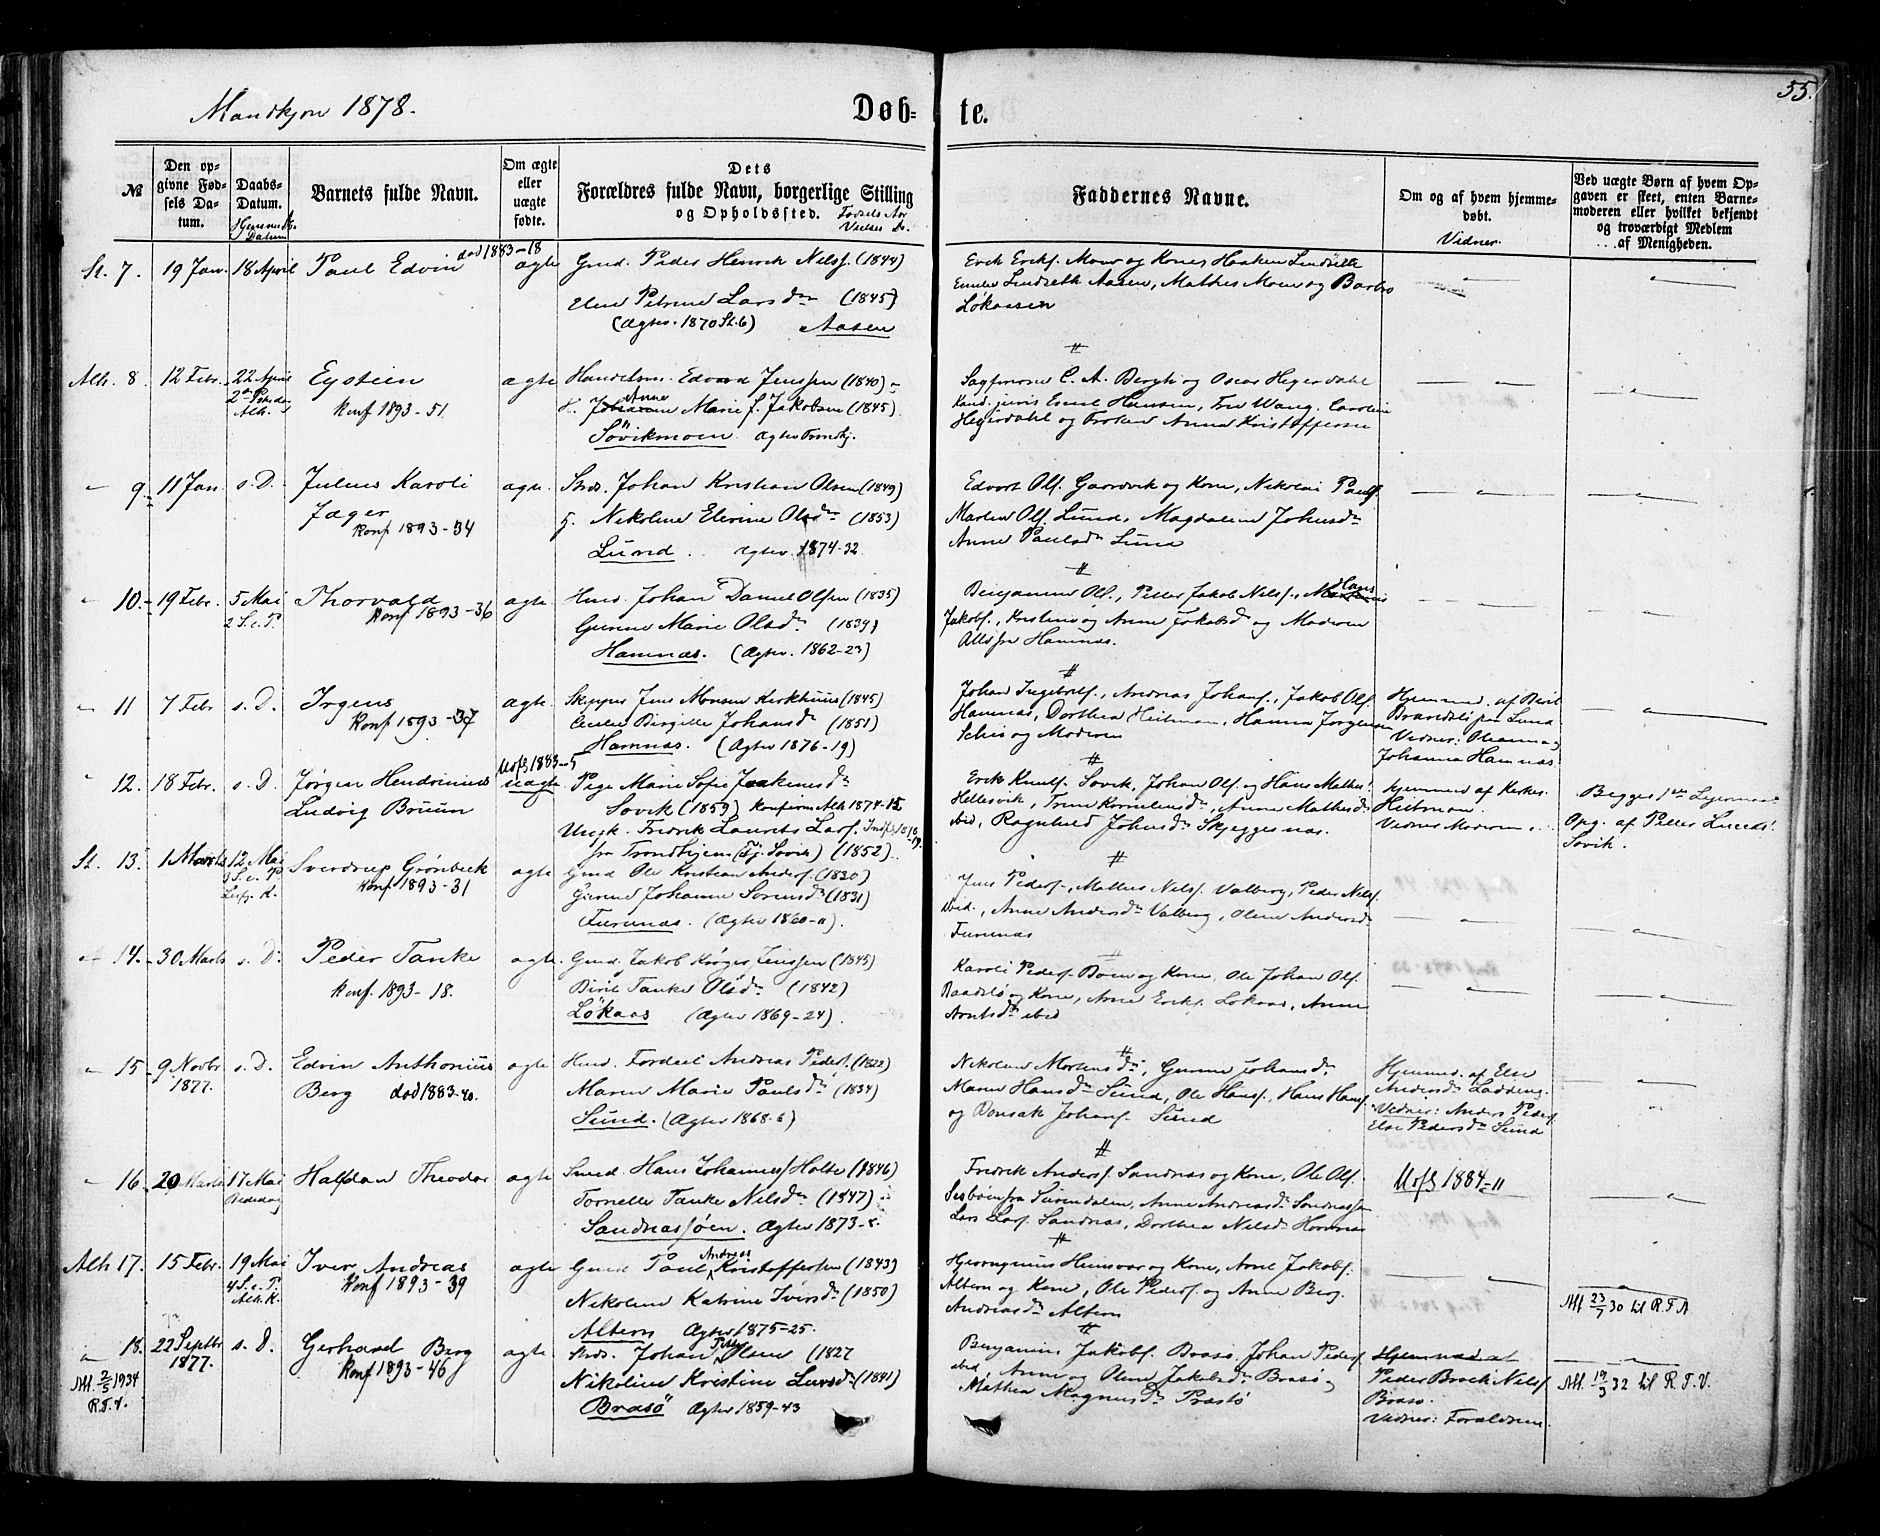 55.
Mandkjøn 1878.
Døb- te.
№
Den op-
givne Fød-
sels Da-
tum.
Daabs-
Datum.
Barnets fulde Navn.
Om ægte
eller
uægte
fødte.
Dets
Forældres fulde Navn, borgerlige Stilling
og Opholdssted.
Faddernes Navne.
Om og af hvem hjemme-
døbt.
Vidner.
Ved uægte Børn af hvem Op-
gaven er skeet, enten Barne-
moderen eller hvilket bekjendt
og troværdigt Medlem
af Menigheden.
St. 7. 19 Jan. 18 April Paul Edvin død 1883-18 ægte Gmd. Peder Henrik Nilsf. (1844)
Petrine Larsdr (1845)
(Ægtev. 1870 St. 6) Aasen
Erik Eriksf. Moen og Kone, Haaken Lindseth
Lindseth Aasen, Mathis Moen og Barbro
Løkaasen
Alh. 8. 12 Febr. 22 April
2den Paaskedag
Alh.
Eystein
Konf 1893-51.
ægte Handelsm. Edvard Jenssen (1840)
Anne Marie f. Jakobsen (1845)
Søvikmoen Ægtev Trondhj.
C. A. Bergh og Oscar Hegerdahl
Kand. juris Emil Hansen, Fru Wang, Caroline
Hegerdahl og Frøken Anna Kristoffersen
9. 11 Jan. s. D. Julius Karoli
Jæger
Konf 1893-34
ægte Strds. Johan Kristian Olsen (1849)
Nikoline Elerine Olsdr (1853)
Lund. Ægtev. 1874-32
Edvart Olf. Gaardvik og Kone, Nikolai Paulf.
Martin Olf. Lund, Magdalene Johnsdr
Anne Paulsdr Lund
10. 19 Febr. 5 Mai
2 S. e. P.
Thorvald
Konf 1893-36
ægte Hmd. Johan Daniel Olsen (1835)
Gurine Marie Olsdr (1839)
Hamnæs. (Ægtev. 1862-23)
Benjamin Olf., Petter Jakob Nilsf., Hans
Jakobf., Kristine og Anne Jakobsdr og Moderen
Alle fra Hamnæs.
11 7 Febr. s. D. Irgens
Konf 1893-37
ægte. Skipper Jens Monsen Kirkhuus (1845)
Birgitte Johansdr (1851)
Hamnæs. (Ægtev 1876-19)
Johan Ingebrigtf., Andreas Johanf., Jakob Olf.
Hamnæs, Dorthea Heitman, Hanna Jørgensen
og Moderen
Hjemmed. af Berit
Brandslf. fra Lund
Vidner: Oleanna og
Johanna Hamnæs.
12. 18 Febr. s. D. Jørgen Hendrinius
Ludvig Bruun
Utfl 1883-5
uægte
Pige Marie Sofie Joakimsdr
Søvik (1859) Konfirm Alh 1874-15
Ungk. Fredrik Laurits Larsf.
fra Trondhjem (Tj. Søvik) (1852)
Erik Knutf. Søvik, Johan Olf. og Hans Mathisf.
Hellesvik, Trine Korneliusdr, Anne Mathisdr
ibid, Ragnhild Johnsdr Skjeggesnæs.
Hjemmed af Kirkes.
Heitman.
Vidner Moderen.
Begges 1ste Leiermaal
Opg. af Petter
Søvik.
St. 13. 1 Marts 12 Mai
3 S. e. P.
Leirf. K.
Sverdrup Grønbeck
Konf 1893-31
ægte Gmd Ole Kristian Andersf. (1830)
Gurine Johanne Sørensdr (1831)
Furenæs. (Ægtev 1860-11).
Jens Pedersf., Mathis Nilsf. Valberg, Peder Nilsf.
ibid., Anne Andersdr Valberg, Oline Andersdr
Furenæs
14. 30 Marts s. D. Peder Tanke
Konf. 1893-18.
ægte. Gmd. Jakob Jenssen (1845)
Birit Tanke Olsdr (1842)
Løkaas (Ægtev 1869-24).
Karoli Pedersf. Boen og Kone, Ole Johan Olf.
og Kone, Arne Eriksf. Løkaas, Anne
Arntsdr ibid
15 9 Novbr
1877.
s. D. Edvin Anthonius
Berg død 1883-40.
ægte Hmd. Andreas Pedersf. (1822)
Maren Marie Paulsdr (1834)
Sund. (Ægtev 1868-6)
Nikoline Mortensdr, Gurine Johansdr,
Maren Hansdr Sund, Ole Hansf., Hans Hansf.
og Johanf. Sund
Hjemmed. af Else
Andersdr
Vidner: Anders Pedersf.
Else Pedersdr Sund
16. 20 Marts 17 Mai
Bededag
Halfdan Theodor
ægte Smed. Hans Johannesf Holte (1846)
Tornelle Tanke Nilsdr (1847)
Sandnæssjøen. Ægtev 1873-8.
Fredrik Andersf. Sandnæs og Kone, Ole Olf.
fra Surendalen, Anne Andreasdr Sandnæssjøen
Lars Larsf. Sandnæs, Dorthea Nilsdr Hamnæs
Utfl 1884-11
Alh 17. 15 Febr. 19 Mai
4 S. e. P.
Alh. K.
Iver Andreas
Konf 1893-39
ægte Gmd Paul Andreas Kristoffersen (1843)
Nikoline Katrine Iversdr (1850)
Altern Ægtev 1875-25.
Hjeronymus Heimsvær og Kone, Arnt Jakobf.
Altern og Kone, Ole Pedersf. og Anne Berg.
Andreasdr Altern
Att 23/7 30 til R.T.A
18. 22 Septbr
1877.
s. D. Gerhard Berg
Konf 1893-46
Att. 2/5 1934
R.T.V.
ægte. Strds. Johan Peder Olsen (1827
Nikoline Kristine Larsdr (1841)
Brasø Ægtev 1859-43
Benjamin Jakobf. Brasø, Johan Pedersf.
ibid, Anne og Oline Jakobsdr Brasø,
Mathea Magnusdr Prastø
Hjemmed af
Peder Brock Nilsf
Brasø.
Vidner: Forældrene.
Att. 19/3 32 til R.T.V.